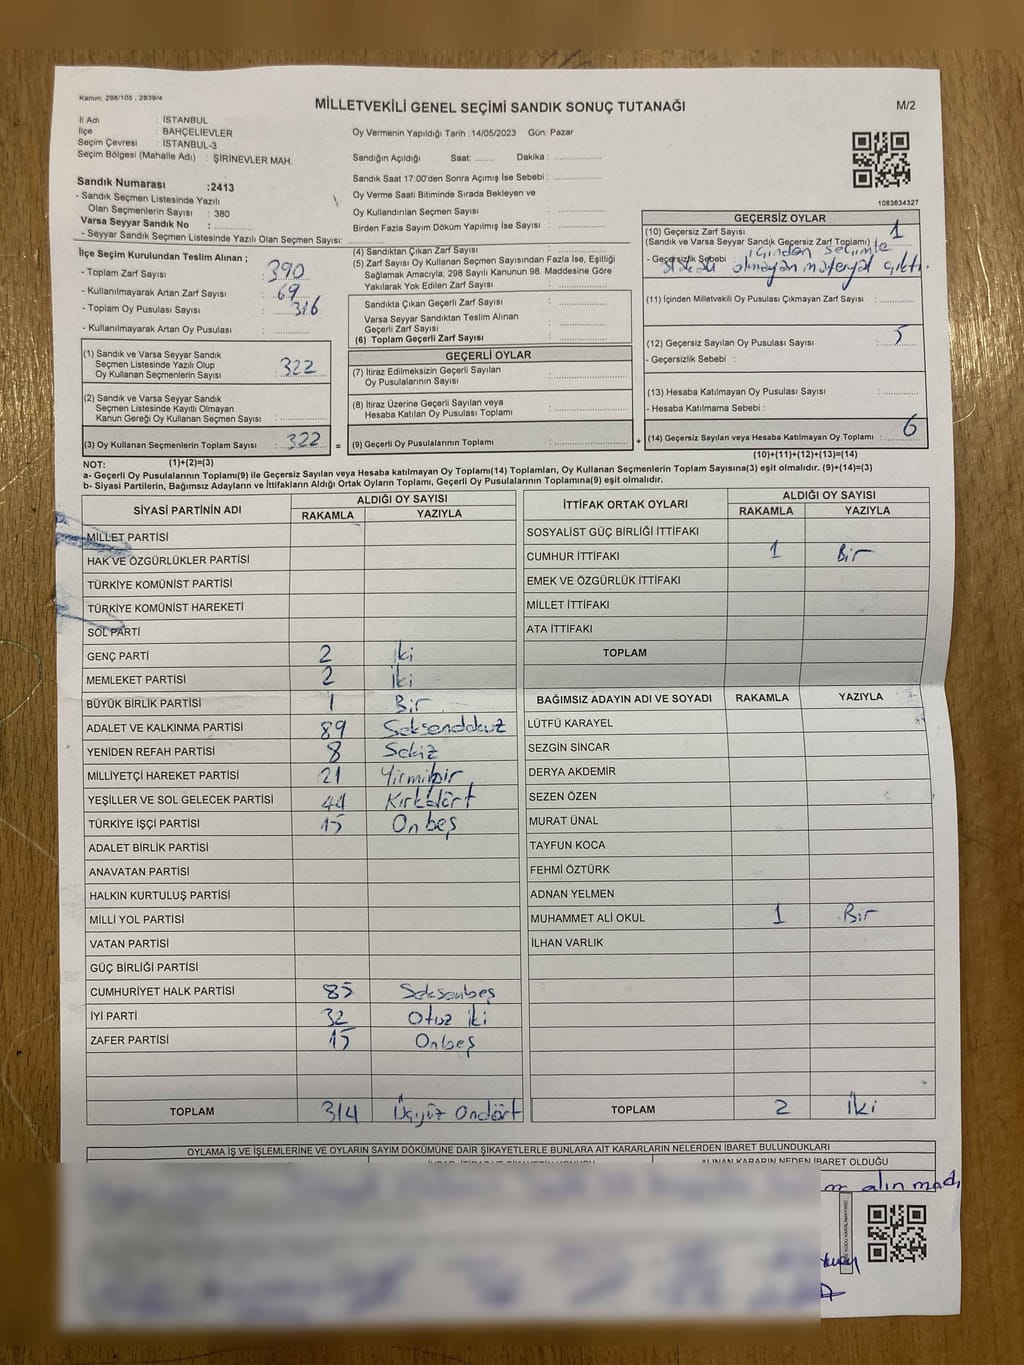 Kanun: 298/105 , 2839/4
MİLLETVEKİLİ GENEL SEÇİMİ SANDIK SONUÇ TUTANAĞI
M/2
İl Adı : İSTANBUL
İlçe : BAHÇELİEVLER
Seçim Çevresi : İSTANBUL-3
Seçim Bölgesi (Mahalle Adı) : ŞİRİNEVLER MAH.
Oy Vermenin Yapıldığı Tarih :14/05/2023 Gün: Pazar
Sandığın Açıldığı Saat: ........ Dakika : ..................
Sandık Saat 17:00'den Sonra Açımış İse Sebebi : ..................
Oy Verme Saati Bitiminde Sırada Bekleyen ve
Oy Kullandırılan Seçmen Sayısı : ..................
Birden Fazla Sayım Döküm Yapılmış İse Sayısı : ..................
1083634327
Sandık Numarası :2413
- Sandık Seçmen Listesinde Yazılı
Olan Seçmenlerin Sayısı : 380
Varsa Seyyar Sandık No : ..................
- Seyyar Sandık Seçmen Listesinde Yazılı Olan Seçmen Sayısı: ..................
İlçe Seçim Kurulundan Teslim Alınan ;
- Toplam Zarf Sayısı : 390
- Kullanılmayarak Artan Zarf Sayısı : 69
- Toplam Oy Pusulası Sayısı : 316
- Kullanılmayarak Artan Oy Pusulası : ............
(1) Sandık ve Varsa Seyyar Sandık
Seçmen Listesinde Yazılı Olup
Oy Kullanan Seçmenlerin Sayısı : 322
(2) Sandık ve Varsa Seyyar Sandık
Seçmen Listesinde Kayıtlı Olmayan
Kanun Gereği Oy Kullanan Seçmen Sayısı : ............
(3) Oy Kullanan Seçmenlerin Toplam Sayısı : 322 =
(4) Sandıktan Çıkan Zarf Sayısı : ..................
(5) Zarf Sayısı Oy Kullanan Seçmen Sayısından Fazla İse, Eşitliği
Sağlamak Amacıyla; 298 Sayılı Kanunun 98. Maddesine Göre
Yakılarak Yok Edilen Zarf Sayısı : ..................
Sandıkta Çıkan Geçerli Zarf Sayısı : ..................
Varsa Seyyar Sandıktan Teslim Alınan
Geçerli Zarf Sayısı : ..................
(6) Toplam Geçerli Zarf Sayısı : ..................
GEÇERLİ OYLAR
(7) İtiraz Edilmeksizin Geçerli Sayılan
Oy Pusulalarının Sayısı : ..................
(8) İtiraz Üzerine Geçerli Sayılan veya
Hesaba Katılan Oy Pusulası Toplamı : ..................
(9) Geçerli Oy Pusulalarının Toplamı : .................. +
GEÇERSİZ OYLAR
(10) Geçersiz Zarf Sayısı : 1
(Sandık ve Varsa Seyyar Sandık Geçersiz Zarf Toplamı)
- Geçersizlik Sebebi : içinden seçimle
alakalı olmayan materyal çıktı.
(11) İçinden Milletvekili Oy Pusulası Çıkmayan Zarf Sayısı : ............
(12) Geçersiz Sayılan Oy Pusulası Sayısı : 5
- Geçersizlik Sebebi :
(13) Hesaba Katılmayan Oy Pusulası Sayısı : ............
- Hesaba Katılmama Sebebi :
(14) Geçersiz Sayılan veya Hesaba Katılmayan Oy Toplamı : 6
(10)+(11)+(12)+(13)=(14)
NOT: (1)+(2)=(3)
a- Geçerli Oy Pusulaları Toplamı(9) ile Geçersiz Sayılan veya Hesaba katılmayan Oy Toplamı(14) Toplamları, Oy Kullanan Seçmenlerin Toplam Sayısına(3) eşit olmalıdır. (9)+(14)=(3)
b- Siyasi Partilerin, Bağımsız Adayların ve İttifakların Aldığı Ortak Oyların Toplamı, Geçerli Oy Pusulalarının Toplamına(9) eşit olmalıdır.
SİYASİ PARTİNİN ADI ALDIĞI OY SAYISI
RAKAMLA YAZIYLA
MİLLET PARTİSİ
HAK VE ÖZGÜRLÜKLER PARTİSİ
TÜRKİYE KOMÜNİST PARTİSİ
TÜRKİYE KOMÜNİST HAREKETİ
SOL PARTİ
GENÇ PARTİ 2 iki
MEMLEKET PARTİSİ 2 iki
BÜYÜK BİRLİK PARTİSİ 1 Bir
ADALET VE KALKINMA PARTİSİ 89 Seksendokuz
YENİDEN REFAH PARTİSİ 8 Sekiz
MİLLİYETÇİ HAREKET PARTİSİ 21 Yirmibir
YEŞİLLER VE SOL GELECEK PARTİSİ 44 Kırkdört
TÜRKİYE İŞÇİ PARTİSİ 15 Onbeş
ADALET BİRLİK PARTİSİ
ANAVATAN PARTİSİ
HALKIN KURTULUŞ PARTİSİ
MİLLİ YOL PARTİSİ
VATAN PARTİSİ
GÜÇ BİRLİĞİ PARTİSİ
CUMHURİYET HALK PARTİSİ 85 Seksenbeş
İYİ PARTİ 32 Otuz iki
ZAFER PARTİSİ 15 Onbeş
TOPLAM 314 Üçyüz Ondört
İTTİFAK ORTAK OYLARI ALDIĞI OY SAYISI
RAKAMLA YAZIYLA
SOSYALİST GÜÇ BİRLİĞİ İTTİFAKI
CUMHUR İTTİFAKI 1 Bir
EMEK VE ÖZGÜRLÜK İTTİFAKI
MİLLET İTTİFAKI
ATA İTTİFAKI
TOPLAM
BAĞIMSIZ ADAYIN ADI VE SOYADI RAKAMLA YAZIYLA
LÜTFÜ KARAYEL
SEZGİN SİNCAR
DERYA AKDEMİR
SEZEN ÖZEN
MURAT ÜNAL
TAYFUN KOCA
FEHMİ ÖZTÜRK
ADNAN YELMEN
MUHAMMET ALİ OKUL 1 Bir
İLHAN VARLIK
TOPLAM 2 iki
OYLAMA İŞ VE İŞLEMLERİNE VE OYLARIN SAYIM DÖKÜMÜNE DAİR ŞİKAYETLERLE BUNLARA AİT KARARLARIN NELERDEN İBARET BULUNDUKLARI
ALINAN KARARIN NEDEN İBARET OLDUĞU
alınmadı